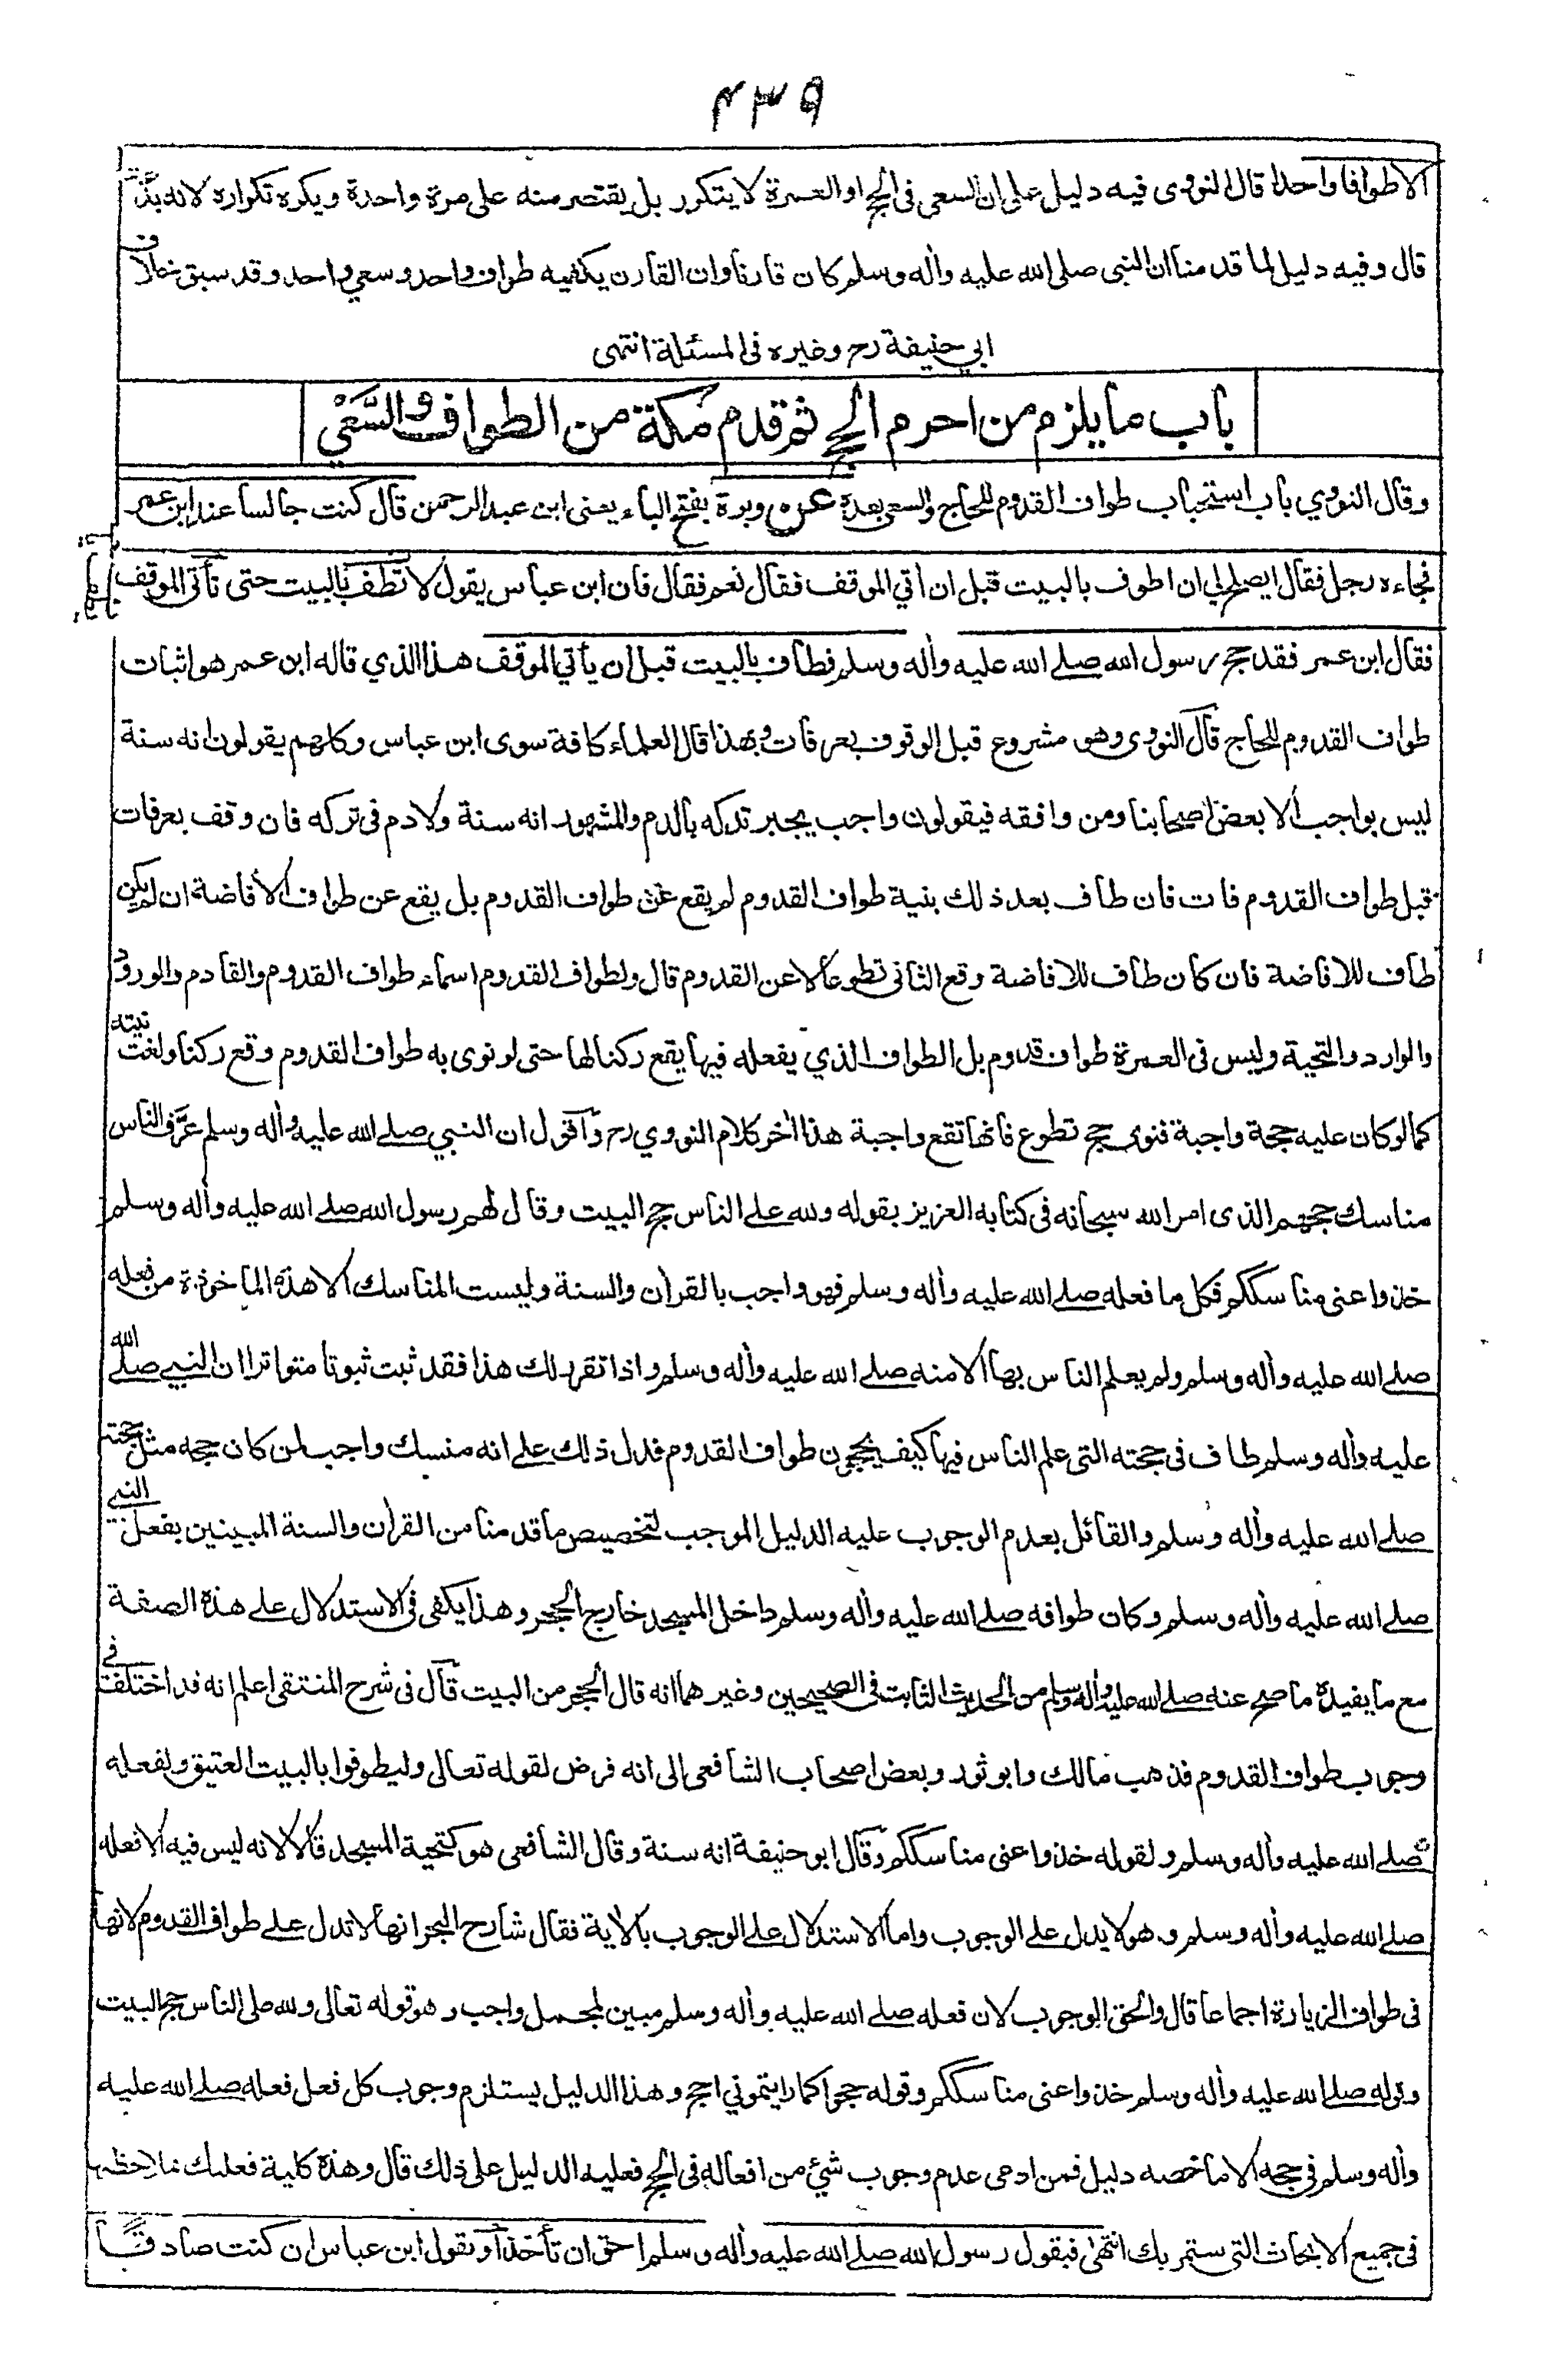 ٤٣٩
الا طوافا واحدا قال النووى فيه دليل على ان السعى فى الحج او العمرة لا يتكرر بل يقتصر منه على مرة واحدة ويكره تكراره لانه بدعة
قال وفيه دليل لما قدمنا ان النبى صلى الله عليه واله وسلم كان قارنا وان القارن يكفيه طواف واحد وسعي واحد وقد سبق خلاف
ابي حنيفة رح وغيره فى المسئلة انتهى
باب ما يلزم من احرم بالحج ثم قدم مكة من الطواف والسَّعْي
وقال النووي باب استحباب طواف القدوم للحاج والسعى بعده عن وبرة بفتح الباء يعنى ابن عبد الرحمن قال كنت جالسا عند ابن عمر
فجاءه رجل فقال ايصلح لي ان اطوف بالبيت قبل ان اتي الموقف فقال نعم فقال فان ابن عباس يقول لا تطف بالبيت حتى تأتى الموقف
فقال ابن عمر فقد حج رسول الله صلے الله عليه واله وسلم فطاف بالبيت قبل ان يأتي الموقف هذا الذي قاله ابن عمر هو اثبات
طواف القدوم للحاج قال النووى وهو مشروع قبل الوقوف بعرفات وبهذا قال العلماء كافة سوى ابن عباس وكلهم يقولون انه سنة
ليس بواجب الا بعض اصحابنا ومن وافقه فيقولون واجب يجبر تركه بالدم والمشهور انه سنة ولادم فى تركه فان وقف بعرفات
قبل طواف القدوم فات فان طاف بعد ذلك بنية طواف القدوم لم يقع عن طواف القدوم بل يقع عن طواف الأفاضة ان لم يكن
طاف للافاضة فان كان طاف للافاضة وقع الثانى تطوعا لا عن القدوم قال ولطواف القدوم اسماء طواف القدوم والقادم والورود
والوارد والتحية وليس فى العمرة طواف قدوم بل الطواف الذي يفعله فيها يقع ركنا لها حتى لو نوى به طواف القدوم وقع ركنا ولغت نيته
كما لو كان عليه حجة واجبة فنوى حج تطوع فانها تقع واجبة هذا اخر كلام النووي رح وأقول ان النبي صلے الله عليه واله وسلم عرَّف الناس
مناسك حجهم الذى امر الله سبحانه فى كتابه العزيز بقوله ولله على الناس حج البيت وقال لهم رسول الله صلے الله عليه واله وسلم
خذوا عنى مناسككم فكل ما فعله صلے الله عليه واله وسلم فهو واجب بالقران والسنة وليست المناسك الا هذه الماخوذة من فعله
صلے الله عليه واله وسلم ولم يعلم الناس بها الا منه صلے الله عليه واله وسلم واذا تقرر لك هذا فقد ثبت ثبوتا متواترا ان النبي صلے الله
عليه واله وسلم طاف فى حجته التى علم الناس فيها كيف يحجون طواف القدوم فدل ذلك على انه منسك واجب لمن كان حجه مثل حجته
صلے الله عليه واله وسلم والقائل بعدم الوجوب عليه الدليل الموجب لتخصيص ما قدمنا من القران والسنة المبينين بفعل النبي
صلے الله عليه واله وسلم وكان طوافه صلے الله عليه واله وسلم داخل المسجد خارج الحجر وهذا يكفى فى الاستدلال على هذه الصفة
مع ما يفيده ما صح عنه صلے الله عليه واله وسلم من الحديث الثابت فى الصحيحين وغيرهما انه قال الحجر من البيت قال فى شرح المنتقى اعلم انه قد اختلفت فى
وجوب طواف القدوم فذهب مالك وابو ثور وبعض اصحاب الشافعى الى انه فرض لقوله تعالى وليطوفوا بالبيت العتيق ولفعله
صلے الله عليه واله وسلم ولقوله خذوا عنى مناسككم وقال ابو حنيفة انه سنة وقال الشافعى هو كتحية المسجد قالا لانه ليس فيه الا فعله
صلے الله عليه واله وسلم وهو لا يدل على الوجوب واما الاستدلال على الوجوب بالأية فقال شارح البحر انها لا تدل على طواف القدوم لانها
فى طواف الزيارة اجماعا قال والحق الوجوب لان فعله صلے الله عليه واله وسلم مبين لمجمل واجب وهو قوله تعالى ولله على الناس حج البيت
وقوله صلے الله عليه واله وسلم خذوا عنى مناسككم وقوله حجوا كما رايتموني احج وهذا الدليل يستلزم وجوب كل فعل فعله صلے الله عليه
واله وسلم فى حجه الا ما خصه دليل فمن ادعى عدم وجوب شيء من افعاله فى الحج فعليه الدليل على ذلك قال وهذه كلية فعليك بملاحظتها
فى جميع الابحاث التى ستمر بك انتهى فبقول رسول الله صلے الله عليه واله وسلم احق ان تأخذ أو بقول ابن عباس ان كنت صادقًا